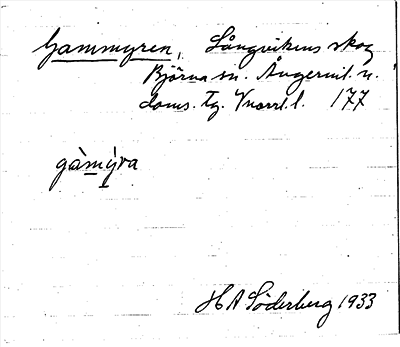 Gammyren, Långvikens skog
Björna sn. Ångerml. n.
doms. Tg. Vnorrl. l. 177
gàmýra
H A Söderberg 1933